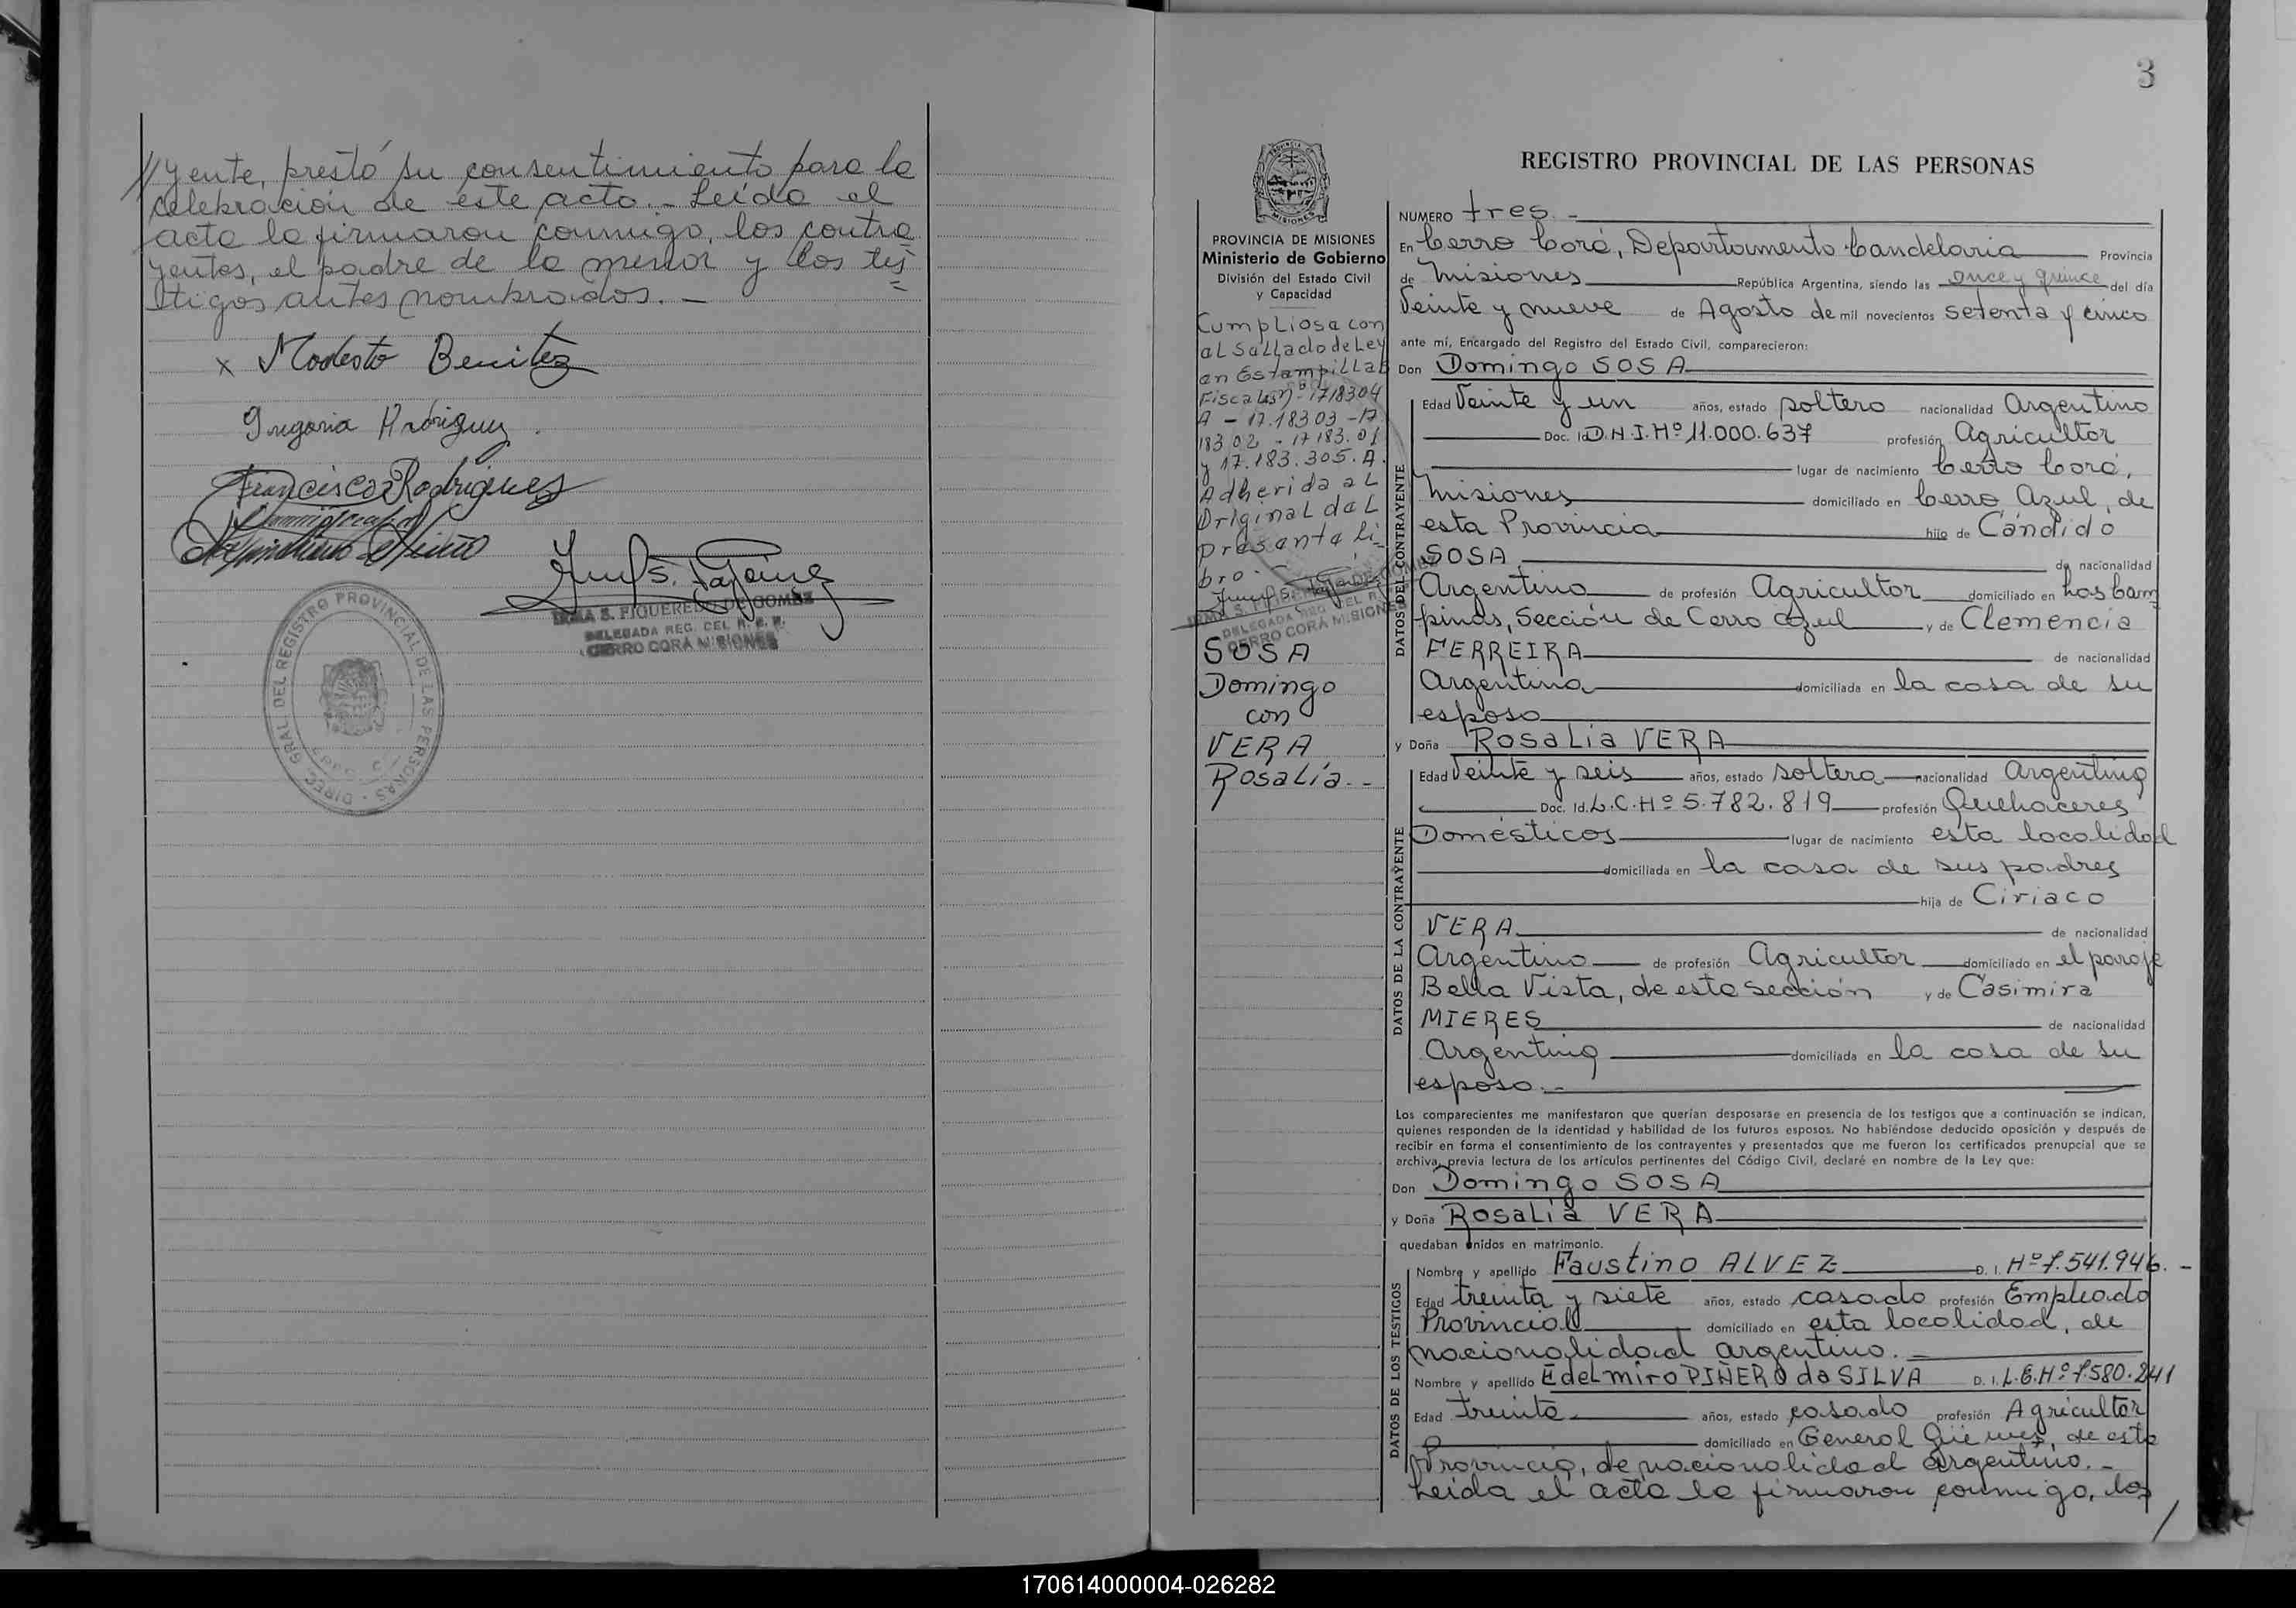 //yente, prestó su consentimiento para la
celebración de éste acto.- Leída el
acta la firmaron conmigo, los contra
yentes, el padre de la menor y los tes
tigos antes nombrados.-
x Modesto Benitez
Gregoria Rodriguez
Francisco Rodrigues
IRMA S. FIGUEREDO DE GOMEZ
DELEGADA REG. DEL R. E. P.
CERRO CORA MISIONES
DIREC. GRAL. DEL REGISTRO PROVINCIAL DE LAS PERSONAS
3
REGISTRO PROVINCIAL DE LAS PERSONAS
PROVINCIA DE MISIONES
Ministerio de Gobierno
División del Estado Civil
y Capacidad
Cumpliose con
al Sallado de Ley
en Estampillas
Fiscales nº 1718304
A - 17.18303 - 17
183 02 - 17183.01
y 17.183.305.A.
Adherida al
Original del
presente li-
bro.-
IRMA S. FIGUEREDO DE GOMEZ
DELEGADA REG. DEL R.
CERRO CORA MISIONES
SOSA
Domingo
con
VERA
Rosalía.-
NUMERO tres.-
En Cerro Corá, Departamento Candelaria Provincia
de Misiones República Argentina, siendo las once y quince del día
Veinte y nueve de Agosto de mil novecientos setenta y cinco
ante mí, Encargado del Registro del Estado Civil, comparecieron:
Don Domingo SOSA
DATOS DEL CONTRAYENTE
Edad Veinte y un años, estado soltero nacionalidad Argentino
Doc. Id. D.N.I. Nº 11.000.637 profesión Agricultor
lugar de nacimiento Cerro Corá,
Misiones domiciliado en Cerro Azul, de
esta Provincia hijo de Cándido
SOSA de nacionalidad
Argentino de profesión Agricultor domiciliado en Las Cam
pinas, Sección de Cerro Azul y de Clemencia
FERREIRA de nacionalidad
Argentina domiciliada en la casa de su
esposo
y Doña Rosalia VERA
DATOS DE LA CONTRAYENTE
Edad Veinte y seis años, estado soltera nacionalidad Argentina
Doc. Id. L.C. Nº 5.782.819 profesión Quehaceres
Domésticos lugar de nacimiento esta localidad
domiciliada en la casa de sus padres
hija de Ciriaco
VERA de nacionalidad
Argentino de profesión Agricultor domiciliado en el paraje
Bella Vista, de esta sección y de Casimira
MIERES de nacionalidad
Argentina domiciliada en la casa de su
esposo.-
Los comparecientes me manifestaron que querían desposarse en presencia de los testigos que a continuación se indican,
quienes responden de la identidad y habilidad de los futuros esposos. No habiéndose deducido oposición y después de
recibir en forma el consentimiento de los contrayentes y presentados que me fueron los certificados prenupcial que se
archiva, previa lectura de los artículos pertinentes del Código Civil, declaré en nombre de la Ley que:
Don Domingo SOSA
y Doña Rosalía VERA
quedaban unidos en matrimonio.
DATOS DE LOS TESTIGOS
Nombre y apellido Faustino ALVEZ D. I. Nº 7.541.946.-
Edad treinta y siete años, estado casado profesión Empleado
Provincial domiciliado en esta localidad, de
nacionalidad argentino.-
Nombre y apellido Edelmiro PIÑERO da SILVA D. I. L.E. Nº 7.580.241
Edad treinta años, estado casado profesión Agricultor
domiciliado en General Güemes, de esta
Provincia, de nacionalidad argentino.-
Leída el acta la firmaron conmigo, los
/
170614000004-026282